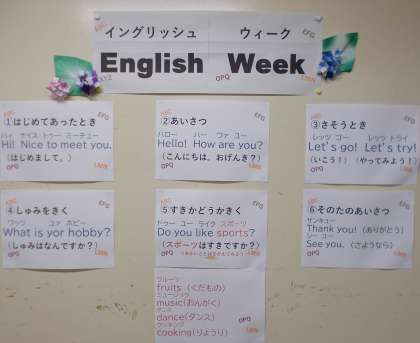 イングリッシュ ウィーク
English Week
ABC
EFG
XYZ
OPQ
LMN
ABC
EFG
①はじめてあったとき
ハィ ナイス トゥー ミーチュー
Hi! Nice to meet you.
(はじめまして。)
OPQ
LMN
ABC
EFG
②あいさつ
ハロー ハー ワァ ユー
Hello! How are you?
(こんにちは。おげんき?)
OPQ
LMN
ABC
EFG
③さそうとき
レッツ ゴー レッツ トライ
Let's go! Let's try!
(いこう!) (やってみよう!)
OPQ
LMN
ABC
EFG
④しゅみをきく
ワッツ ユァ ホビー
What is yor hobby?
(しゅみはなんですか?)
OPQ
LMN
ABC
EFG
⑤すきかどうかきく
ドゥー ユー ライク スポーツ
Do you like sports?
(スポーツはすきですか?)
LMN
ABC
EFG
⑥そのたのあいさつ
サンキュー
Thank you! (ありがとう)
シー ユー
See you. (さようなら)
OPQ
LMN
フルーツ
fruits (くだもの)
ミュージック
music(おんがく)
ダンス
dance(ダンス)
クッキング
cooking(りょうり)
OPQ
LMN